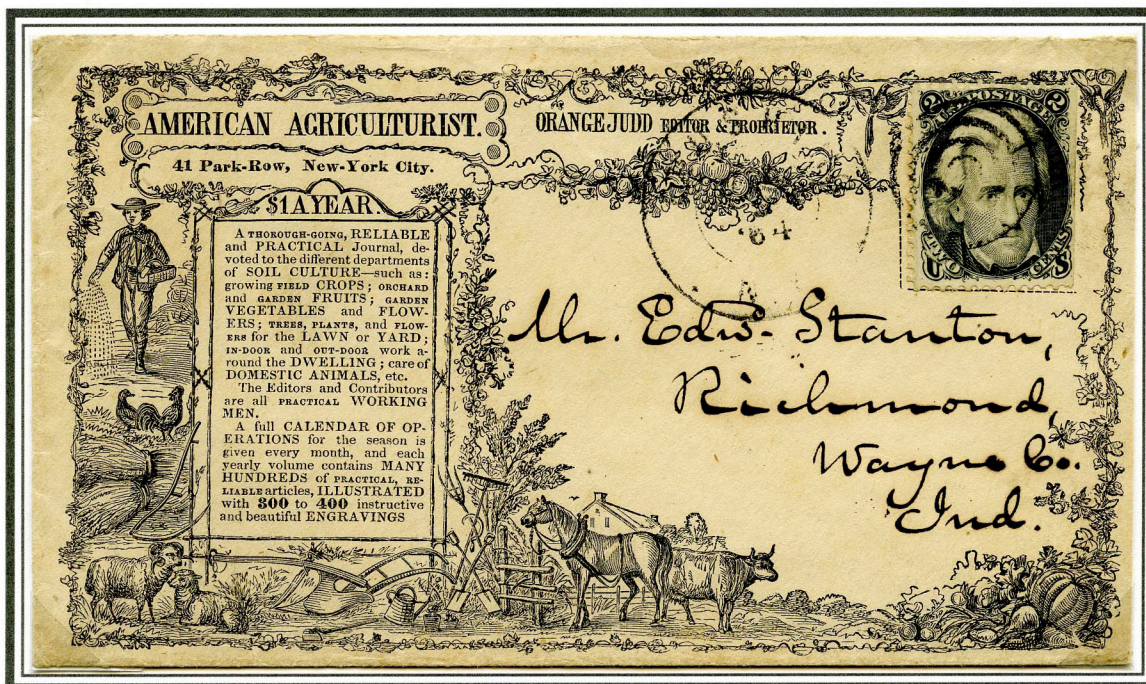 AMERICAN AGRICULTURIST.
ORANGE JUDD EDITOR & PROPRIETOR.
41 Park-Row, New-York City.
$1 A YEAR.
A THOROUGH-GOING, RELIABLE
and PRACTICAL Journal, de-
voted to the different departments
of SOIL CULTURE—such as:
growing FIELD CROPS; ORCHARD
and GARDEN FRUITS; GARDEN
VEGETABLES and FLOW-
ERS; TREES, PLANTS, and FLOW-
ERS for the LAWN or YARD;
IN-DOOR and OUT-DOOR work a-
round the DWELLING; care of
DOMESTIC ANIMALS, etc.
The Editors and Contributors
are all PRACTICAL WORKING
MEN.
A full CALENDAR OF OP-
ERATIONS for the season is
given every month, and each
yearly volume contains MANY
HUNDREDS of PRACTICAL, RE-
LIABLE articles, ILLUSTRATED
with 300 to 400 instructive
and beautiful ENGRAVINGS
2 U.S. POSTAGE 2
U TWO CENTS S
'64
Mr. Edw. Stanton,
Richmond,
Wayne Co.
Ind.